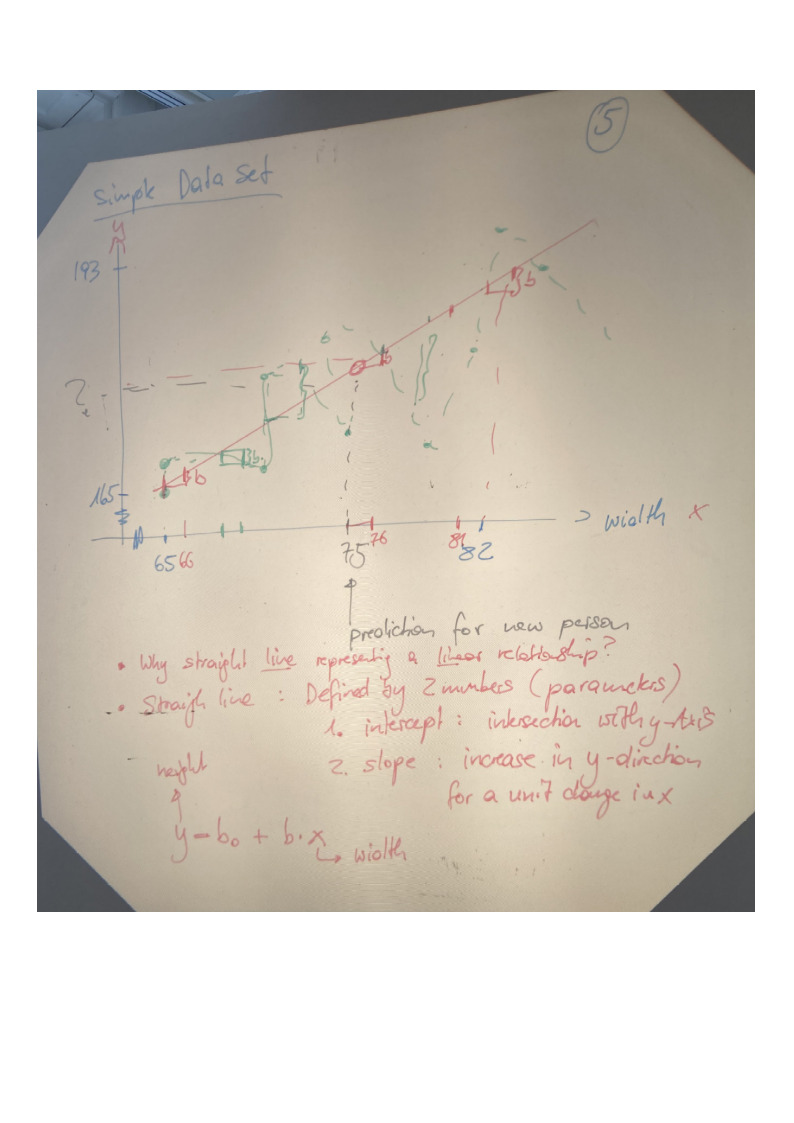 5
Simple Data Set
y
193
b
b
?
b
b
165
width x
65 66
75 76
81 82
prediction for new person
• Why straight line representig a linear relationship?
• Straigh line : Defined by 2 numbers (parameters)
1. intercept : intersection with y-Axis
2. slope : increase in y-direction
for a unit change in x
height
y = b0 + b · x
width